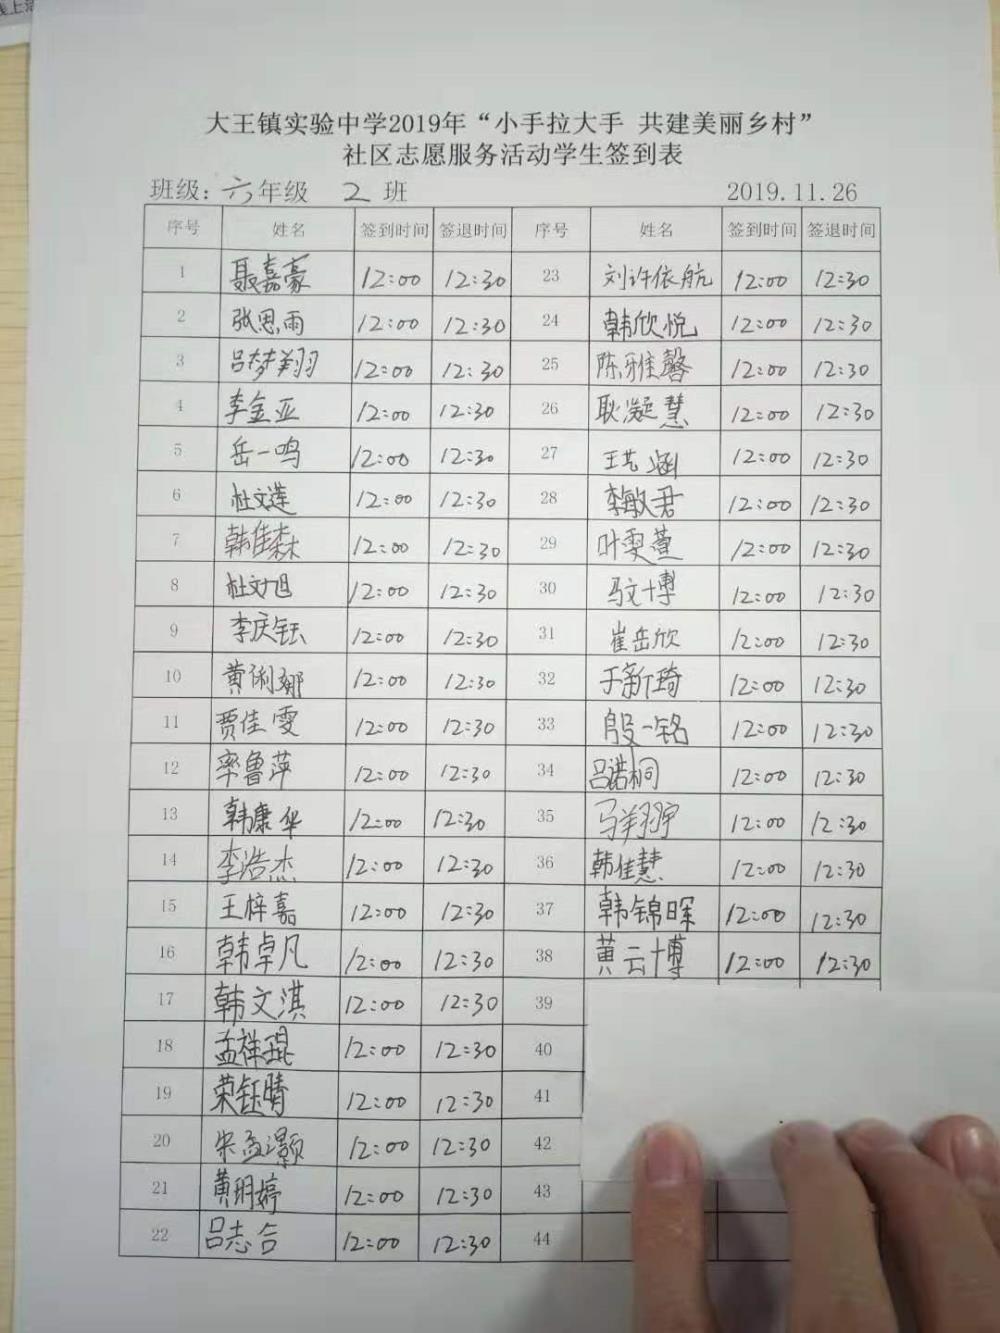 大王镇实验中学2019年“小手拉大手 共建美丽乡村”
社区志愿服务活动学生签到表
班级：六年级 2 班 2019.11.26
序号 姓名 签到时间 签退时间 序号 姓名 签到时间 签退时间
1 聂嘉豪 12:00 12:30 23 刘许依航 12:00 12:30
2 张思雨 12:00 12:30 24 韩欣悦 12:00 12:30
3 吕梦翔 12:00 12:30 25 陈雅馨 12:00 12:30
4 李金亚 12:00 12:30 26 耿凝慧 12:00 12:30
5 岳一鸣 12:00 12:30 27 王艺涵 12:00 12:30
6 杜文莲 12:00 12:30 28 李敏君 12:00 12:30
7 韩佳森 12:00 12:30 29 叶雯萱 12:00 12:30
8 杜文旭 12:00 12:30 30 马文博 12:00 12:30
9 李庆钰 12:00 12:30 31 崔岳欣 12:00 12:30
10 黄俐娜 12:00 12:30 32 于新琦 12:00 12:30
11 贾佳雯 12:00 12:30 33 殷一铭 12:00 12:30
12 李鲁萍 12:00 12:30 34 吕诺桐 12:00 12:30
13 韩康华 12:00 12:30 35 马翔宇 12:00 12:30
14 李浩杰 12:00 12:30 36 韩佳慧 12:00 12:30
15 王梓嘉 12:00 12:30 37 韩锦晖 12:00 12:30
16 韩卓凡 12:00 12:30 38 黄云博 12:00 12:30
17 韩文淇 12:00 12:30 39
18 孟祥琨 12:00 12:30 40
19 荣钰晴 12:00 12:30 41
20 宋孟灏 12:00 12:30 42
21 黄玥婷 12:00 12:30 43
22 吕志合 12:00 12:30 44